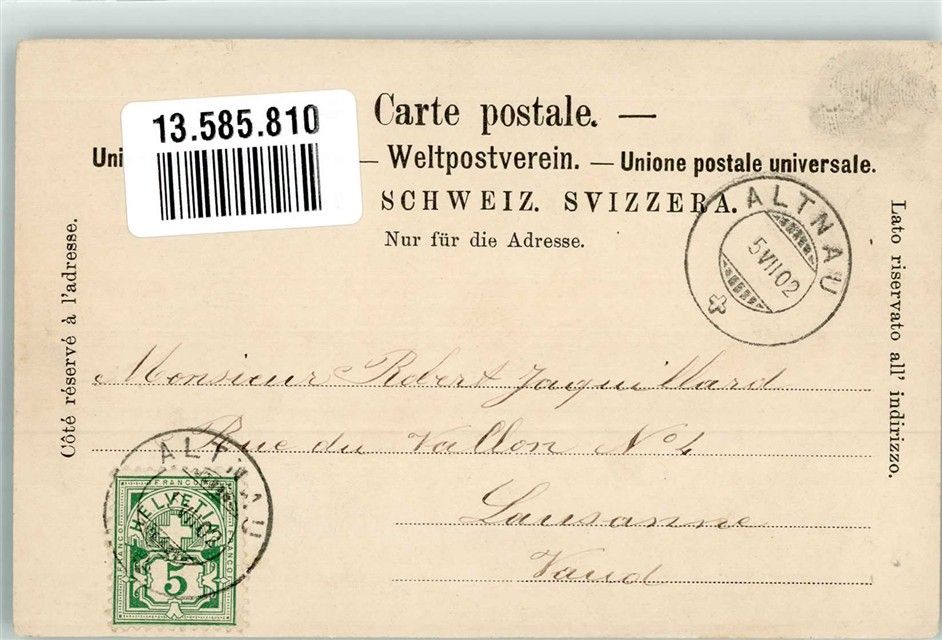 13.585.810
Carte postale. —
Uni — Weltpostverein. — Unione postale universale.
SCHWEIZ. SVIZZERA.
Nur für die Adresse.
Côté réservé à l'adresse.
Lato riservato all' indirizzo.
ALTNAU
5 VII 02
Monsieur Robert Jaquillard
Rue du Vallon No 4
Lausanne
Vaud
ALTNAU
FRANCO
HELVETIA
FRANCO
FRANCO
5